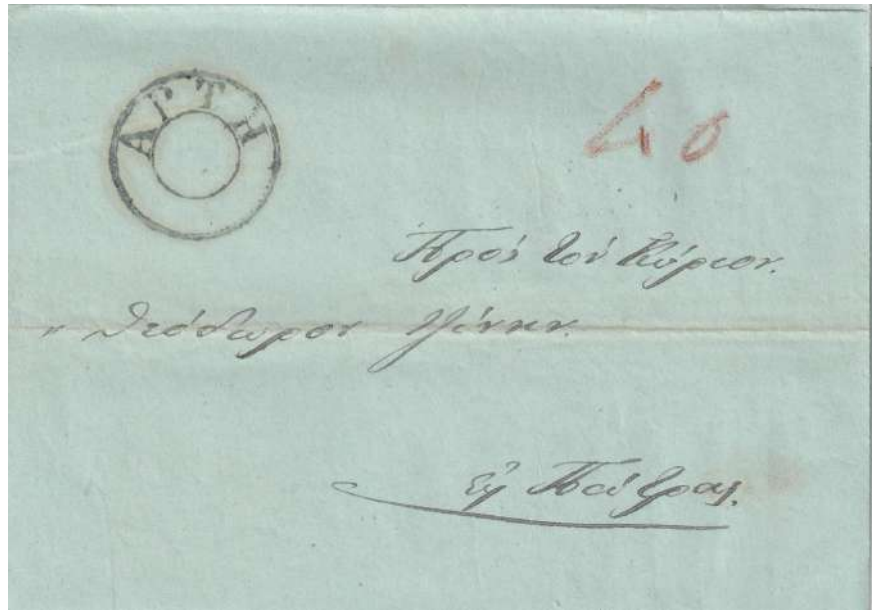 ΑΡΤΗ
40
Πρὸς τὸν Κύριον.
„ Θεόδωρον
εἰς Πάτρας.